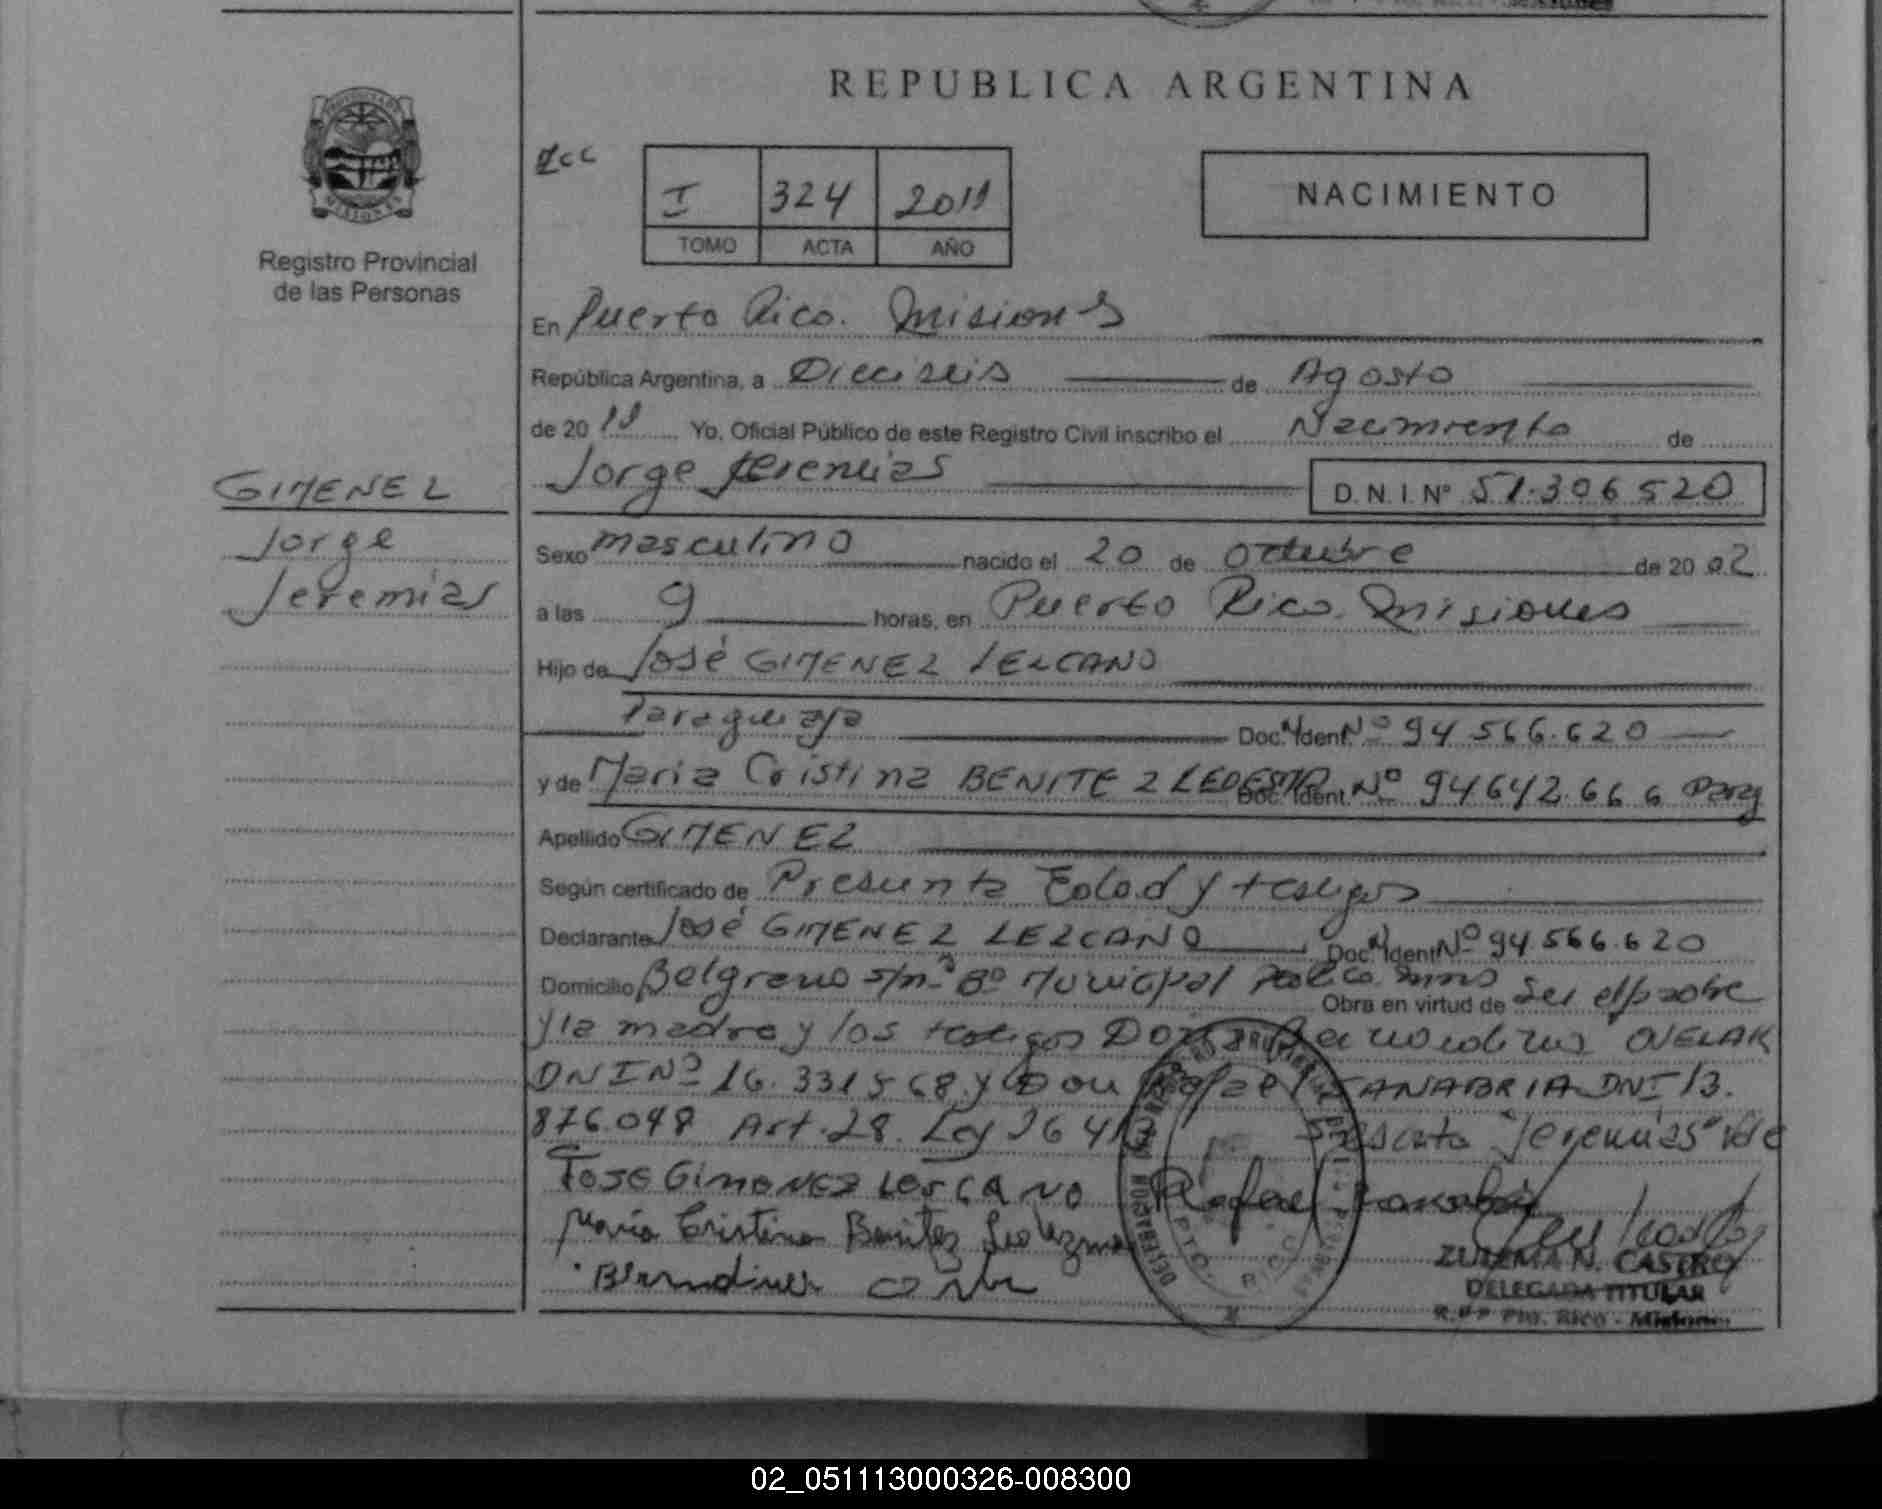 REPUBLICA ARGENTINA
I 324 2011
TOMO ACTA AÑO
NACIMIENTO
Registro Provincial
de las Personas
En Puerto Rico. Misiones
República Argentina, a Dieciseis de Agosto
de 2011 Yo, Oficial Público de este Registro Civil inscribo el Nacimiento de
Jorge Jeremias D.N.I. Nº 51.306 520
GIMENEZ
Jorge
Jeremias
Sexo masculino nacido el 20 de octubre de 20 02
a las 9 horas, en Puerto Rico. Misiones
Hijo de José GIMENEZ LEZCANO
Paraguaya Doc. Ident. Nº 94 566.620
y de Maria Cristina BENITEZ LEDESMA Doc. Ident. Nº 94642.666 Parag
Apellido GIMENEZ
Según certificado de Presunta Edad y testigos
Declarante José GIMENEZ LEZCANO Doc. Ident Nº 94.566.620
Domicilio Belgrano s/nº Bº Municipal
Obra en virtud de Ser el padre
y la madre y los testigos OVELAR
DNI Nº 16.331568 y Don Rafael SANABRIA DNI 13.
876.048 Art. 28. Ley "Jeremias" Vale
JOSE GIMENEZ LESCANO Rafael
Maria Cristina Benitez
ZULEMA N. CASTRO
DELEGADA TITULAR
R.P.P Pto. Rico - Misiones
02_051113000326-008300